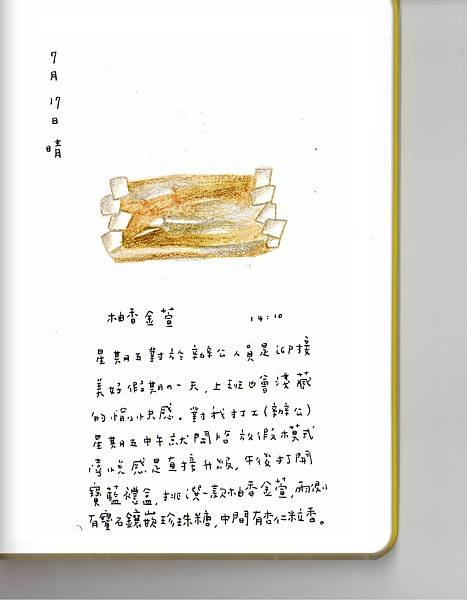 7月17日 晴
柚香金萱 14:10
星期五對於辦公人員是迎接
美好假期的一天,上班也會淺藏
的愉快感。對我打工(辦公)
星期五中午就開啟放假模式
愉悅感是直接升級,午後打開
寶藍禮盒,挑選一款柚香金萱,兩側
有寶石鑲嵌珍珠糖,中間有杏仁粒香。